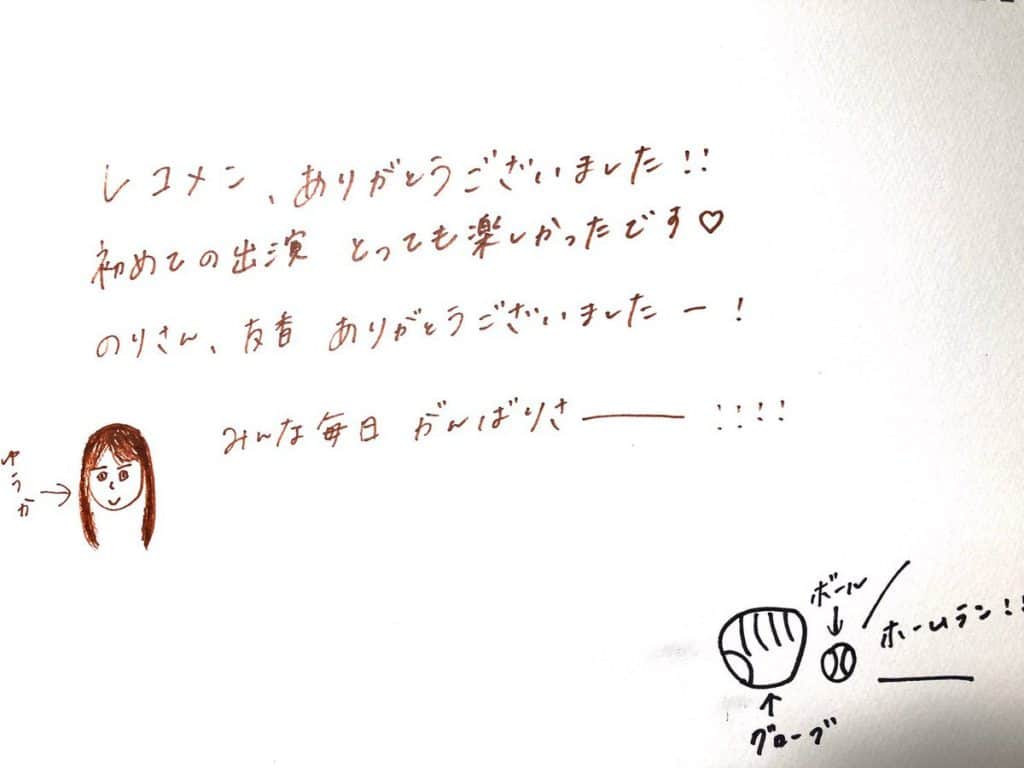 レコメン、ありがとうございました!!
初めての出演 とっても楽しかったです♡
のりさん、友香 ありがとうございましたー!
みんな毎日 がんばりさ―― !!!!
ゆうか
ボール
ホームラン!!
グローブ